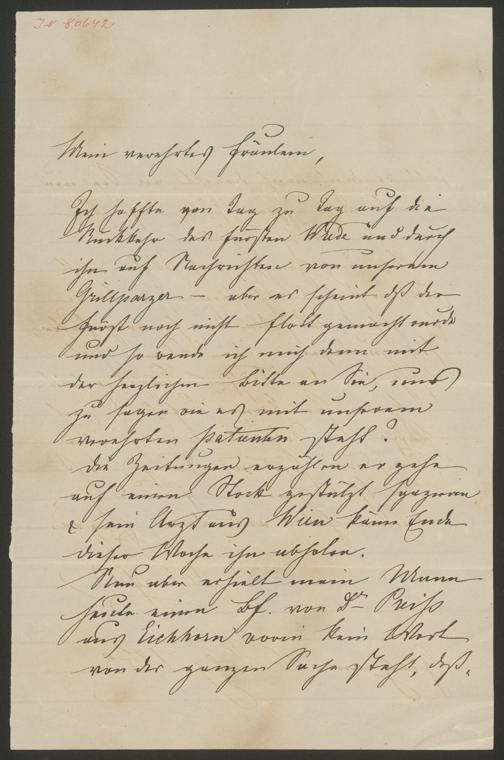 I.N. 80642
Mein verehrtes Fräulein,
Ich hoffte von Tag zu Tag auf die
Rückkehr des Fürsten Wrede und durch
ihn auf Nachrichten von unserem
Grillparzer – aber es scheint dß der
Fürst noch nicht flott gemacht wurde
und so wende ich mich denn mit
der herzlichen Bitte an Sie, uns
zu sagen wie es mit unserem
verehrten Patienten steht?
Die Zeitungen erzählen er gehe
auf einen Stock gestützt spazieren
& sein Arzt aus Wien käme Ende
dieser Woche ihn abholen.
Nun aber erhielt mein Mann
heute einen Bf. von Dr Preiß
aus Eichhorn worin kein Wort
von der ganzen Sache steht, deß-